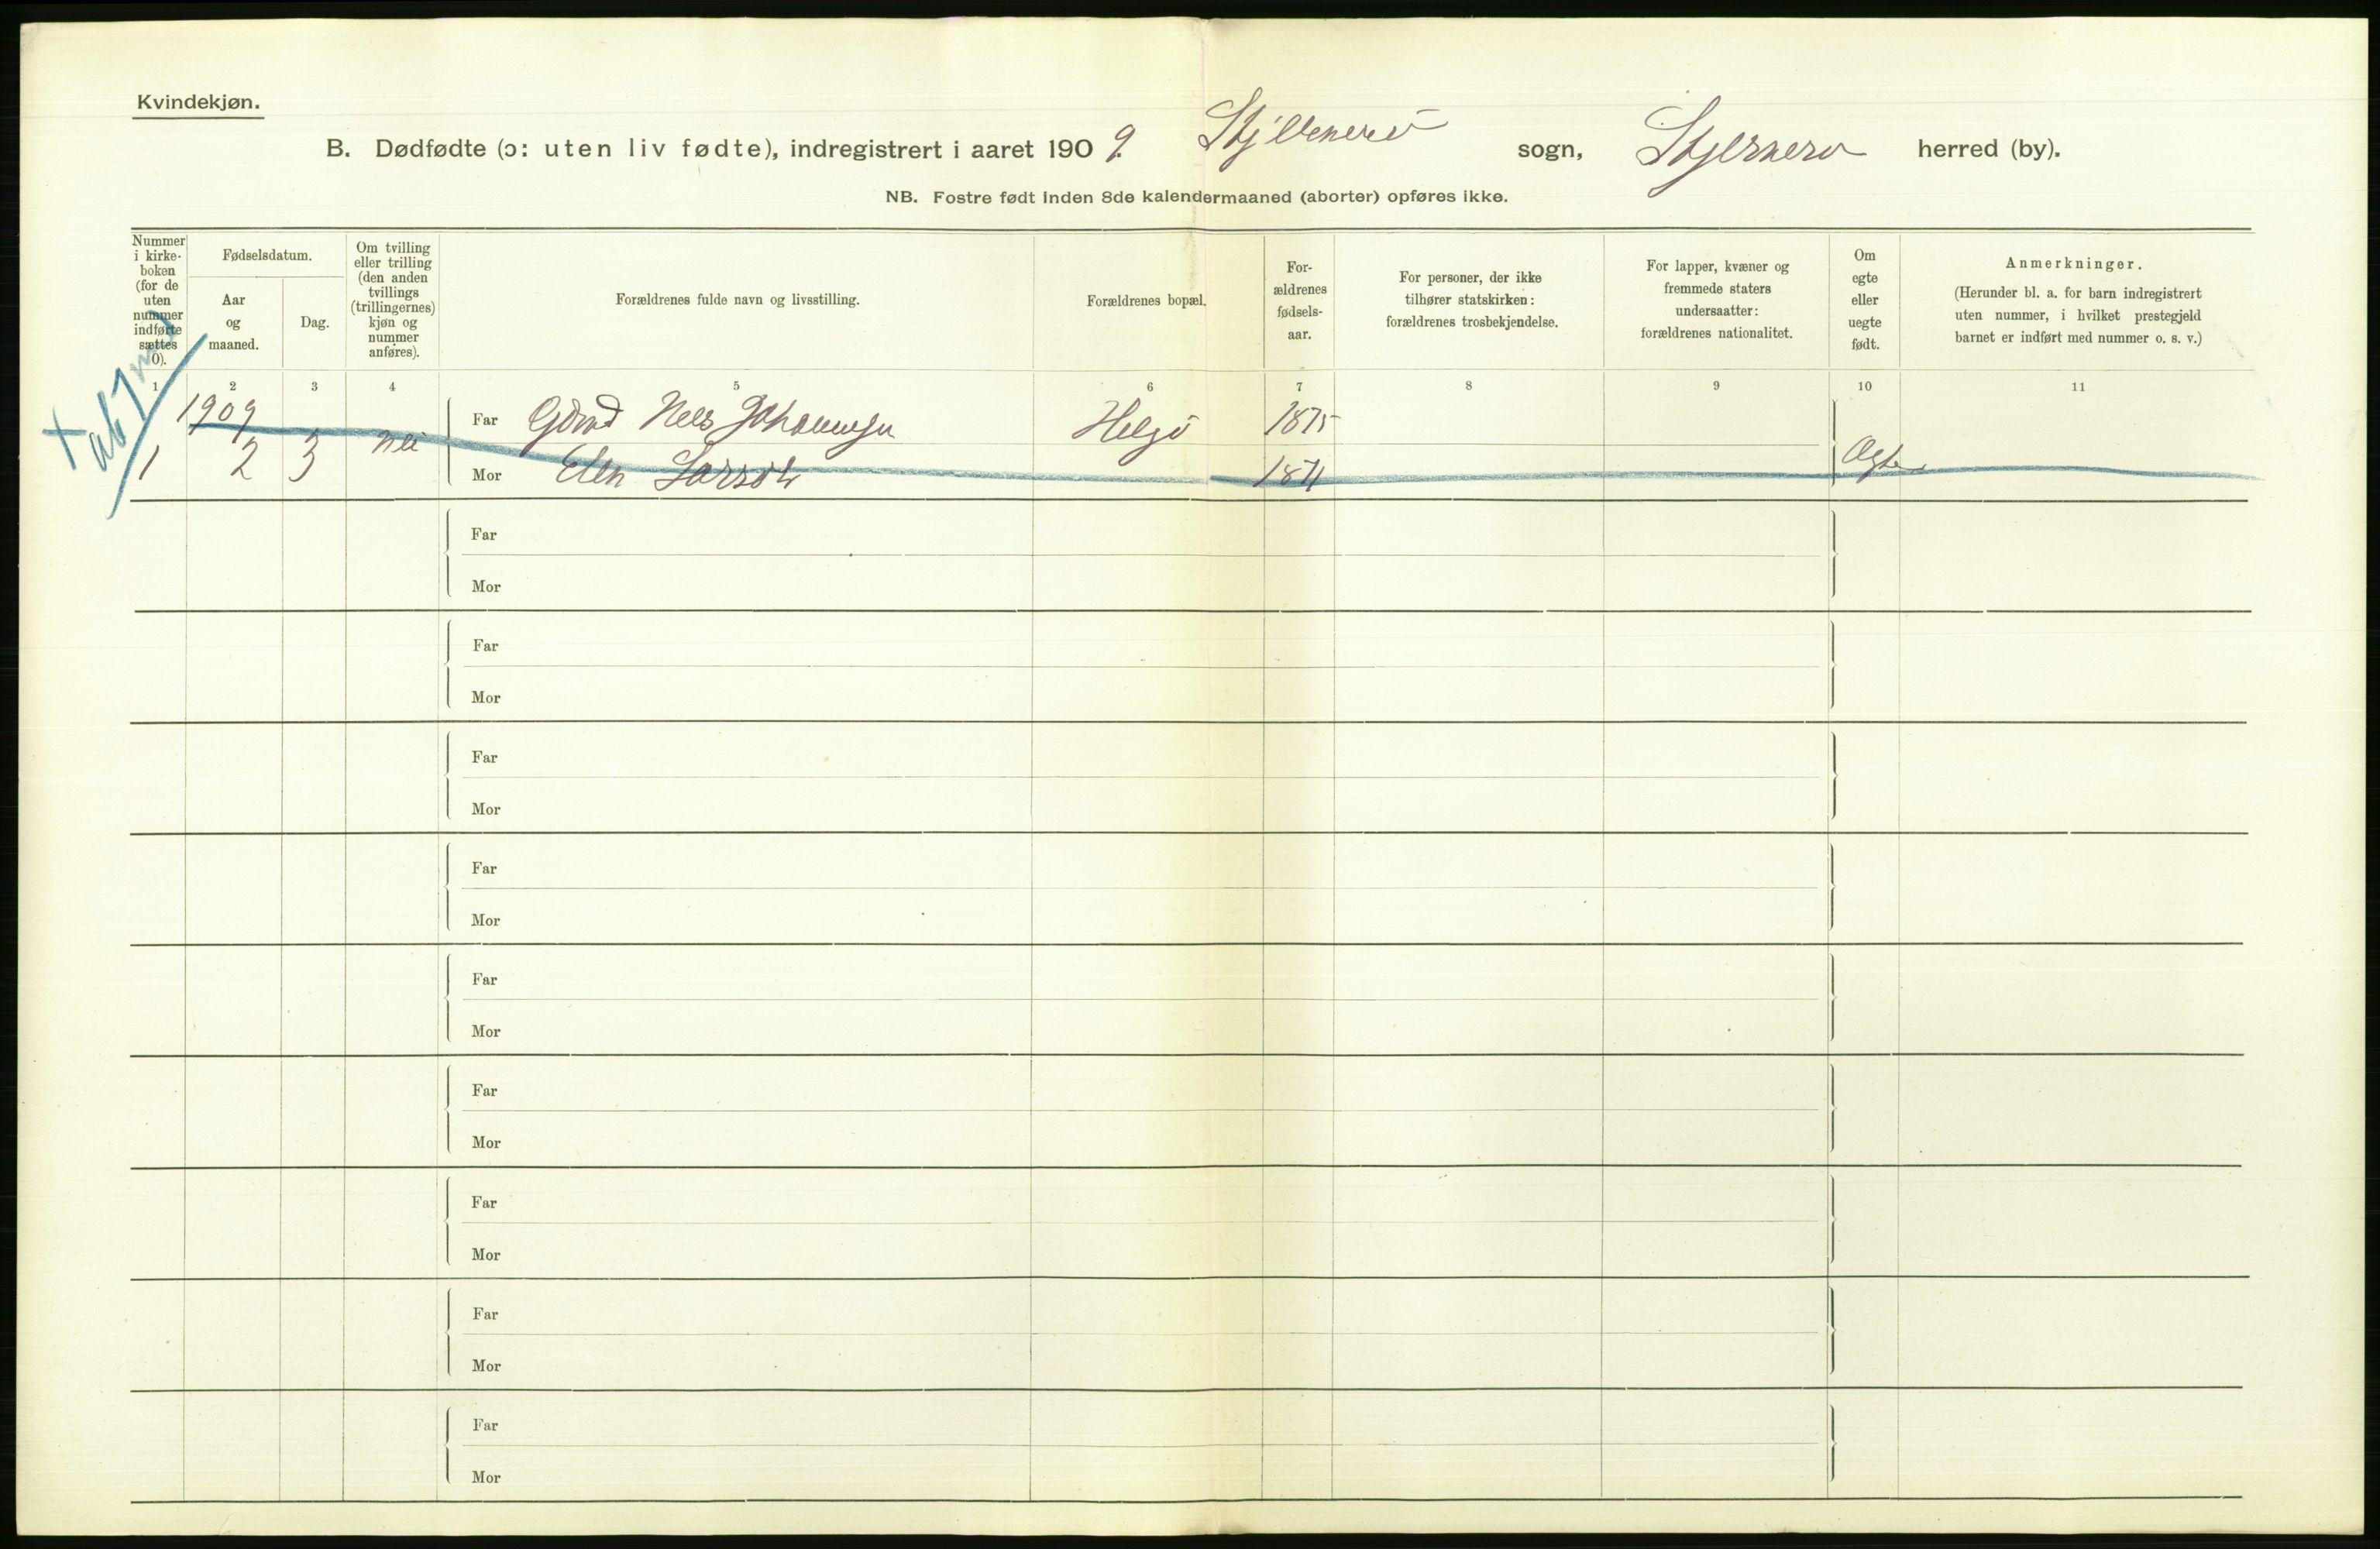 Kvindekjøn.
B. Dødfødte (ɔ: uten liv fødte), indregistrert i aaret 1909. Skjervø sogn, Skjervø herred (by).
NB. Fostre født inden 8de kalendermaaned (aborter) opføres ikke.
Nummer i kirke-boken (for de uten nummer indførte sættes 0).
Fødselsdatum.
Aar og maaned.
Dag.
Om tvilling eller trilling (den anden tvillings (trillingernes) kjøn og nummer anføres).
Forældrenes fulde navn og livsstilling.
Forældrenes bopæl.
For-ældrenes fødsels-aar.
For personer, der ikke tilhører statskirken: forældrenes trosbekjendelse.
For lapper, kvæner og fremmede staters undersaatter: forældrenes nationalitet.
Om egte eller uegte født.
Anmerkninger.
(Herunder bl. a. for barn indregistrert uten nummer, i hvilket prestegjeld barnet er indført med nummer o. s. v.)
1 2 3 4 5 6 7 8 9 10 11
1909 Far Nils Johannesen Helgø 1875
1 2 3 nei Mor Elen 1871 Ægte
Far
Mor
Far
Mor
Far
Mor
Far
Mor
Far
Mor
Far
Mor
Far
Mor
Far
Mor
Far
Mor